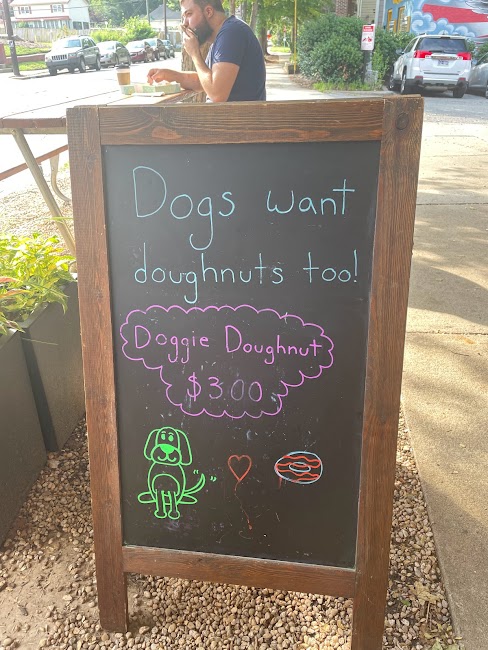 Dogs want
doughnuts too!
Doggie Doughnut
$3.00